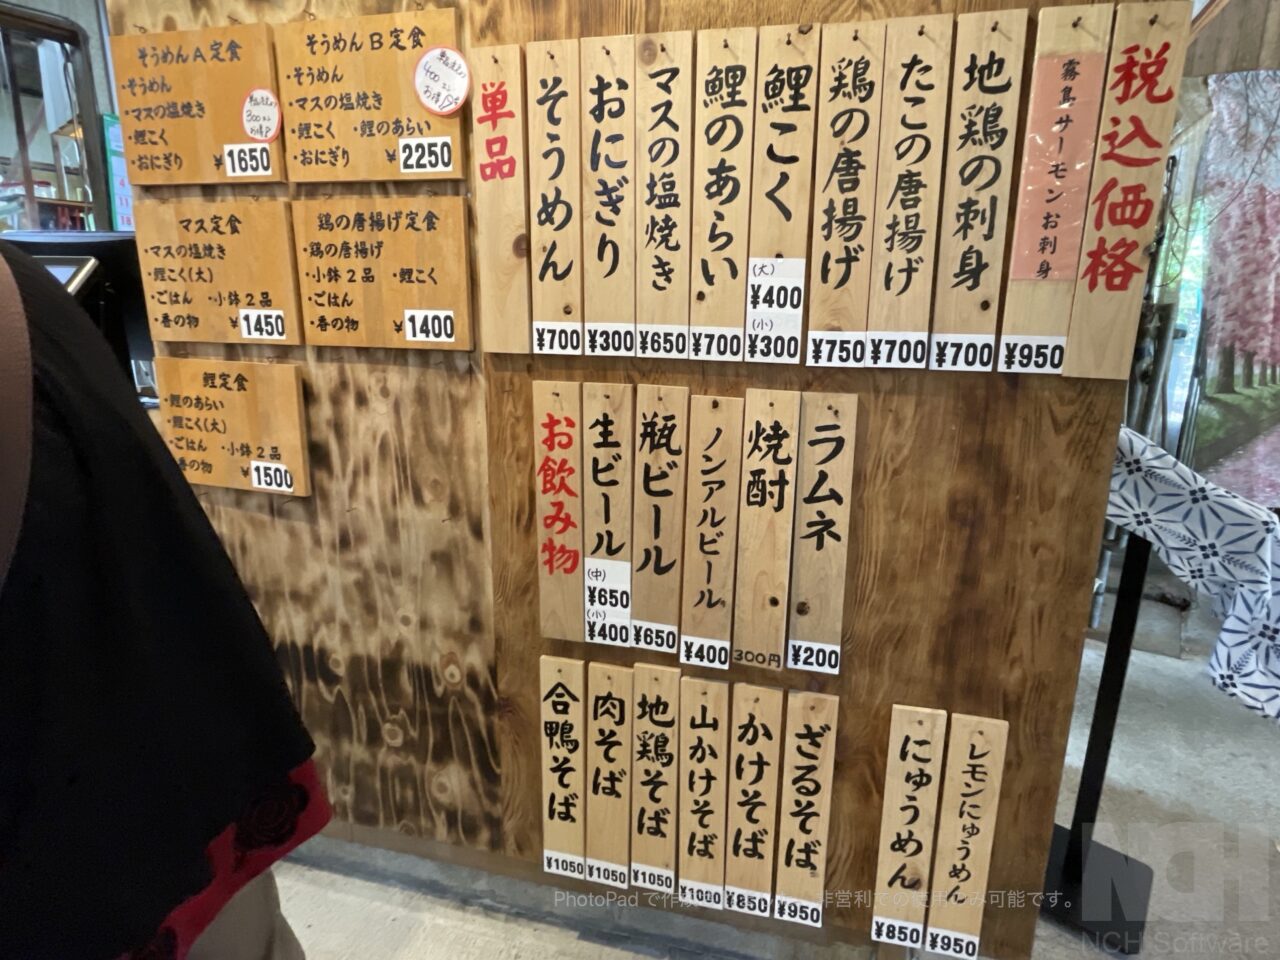 そうめんA定食
・そうめん
・マスの塩焼き
・鯉こく
・おにぎり
300
お得
¥1650
そうめんB定食
・そうめん
・マスの塩焼き
・鯉こく ・鯉のあらい
・おにぎり
400
お得
¥2250
マス定食
・マスの塩焼き
・鯉こく(大)
・ごはん ・小鉢2品
・香の物
¥1450
鶏の唐揚げ定食
・鶏の唐揚げ
・小鉢2品 ・鯉こく
・ごはん
・香の物
¥1400
鯉定食
・鯉のあらい
・鯉こく(大)
・ごはん ・小鉢2品
香の物
¥1500
税込価格
霧島サーモンお刺身
¥950
地鶏の刺身
¥700
たこの唐揚げ
¥700
鶏の唐揚げ
¥750
鯉こく
(大)
¥400
(小)
¥300
鯉のあらい
¥700
マスの塩焼き
¥650
おにぎり
¥300
そうめん
¥700
単品
ラムネ
¥200
焼酎
300円
ノンアルビール
¥400
瓶ビール
¥650
生ビール
(中)
¥650
(小)
¥400
お飲み物
レモンにゅうめん
¥950
にゅうめん
¥850
ざるそば
¥950
かけそば
¥850
山かけそば
¥1000
地鶏そば
¥1050
肉そば
¥1050
合鴨そば
¥1050
PhotoPadで作
非営利での使用のみ可能です。
NCH
NCH Software